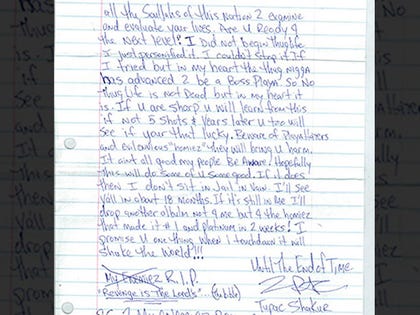 all thy Souljahs of this Nation 2 examine
and evaluate your lives. Are U Ready 4
the next level? I Did not begin Thuglife
I just personified it. I couldn't stop it if
I tried but in my heart the thug nigga
has advanced 2 be a Boss Playa. So No
Thug Life is not Dead but in my heart it
is. If U are sharp U will learn from this
if Not 5 Shots & Years later U too will
see if your that lucky. Beware of PlayaHaters
and envious "homiez" they will bring U harm.
It aint all good my people Be Aware! Hopefully
this will do some of U some good. If it does
then I don't sit in Jail in Vain. I'll see
Yall in about 18 months. If it's still in me I'll
drop another album not 4 me but 4 the homiez
that made it #1 and platinum in 2 weeks! I
promise U one thing when I touchdown it will
Shake the World!!!
Until The End of Time
My Enemiez R.I.P.
"Revenge is The Lords"... (Bible)
Tupac Shakur